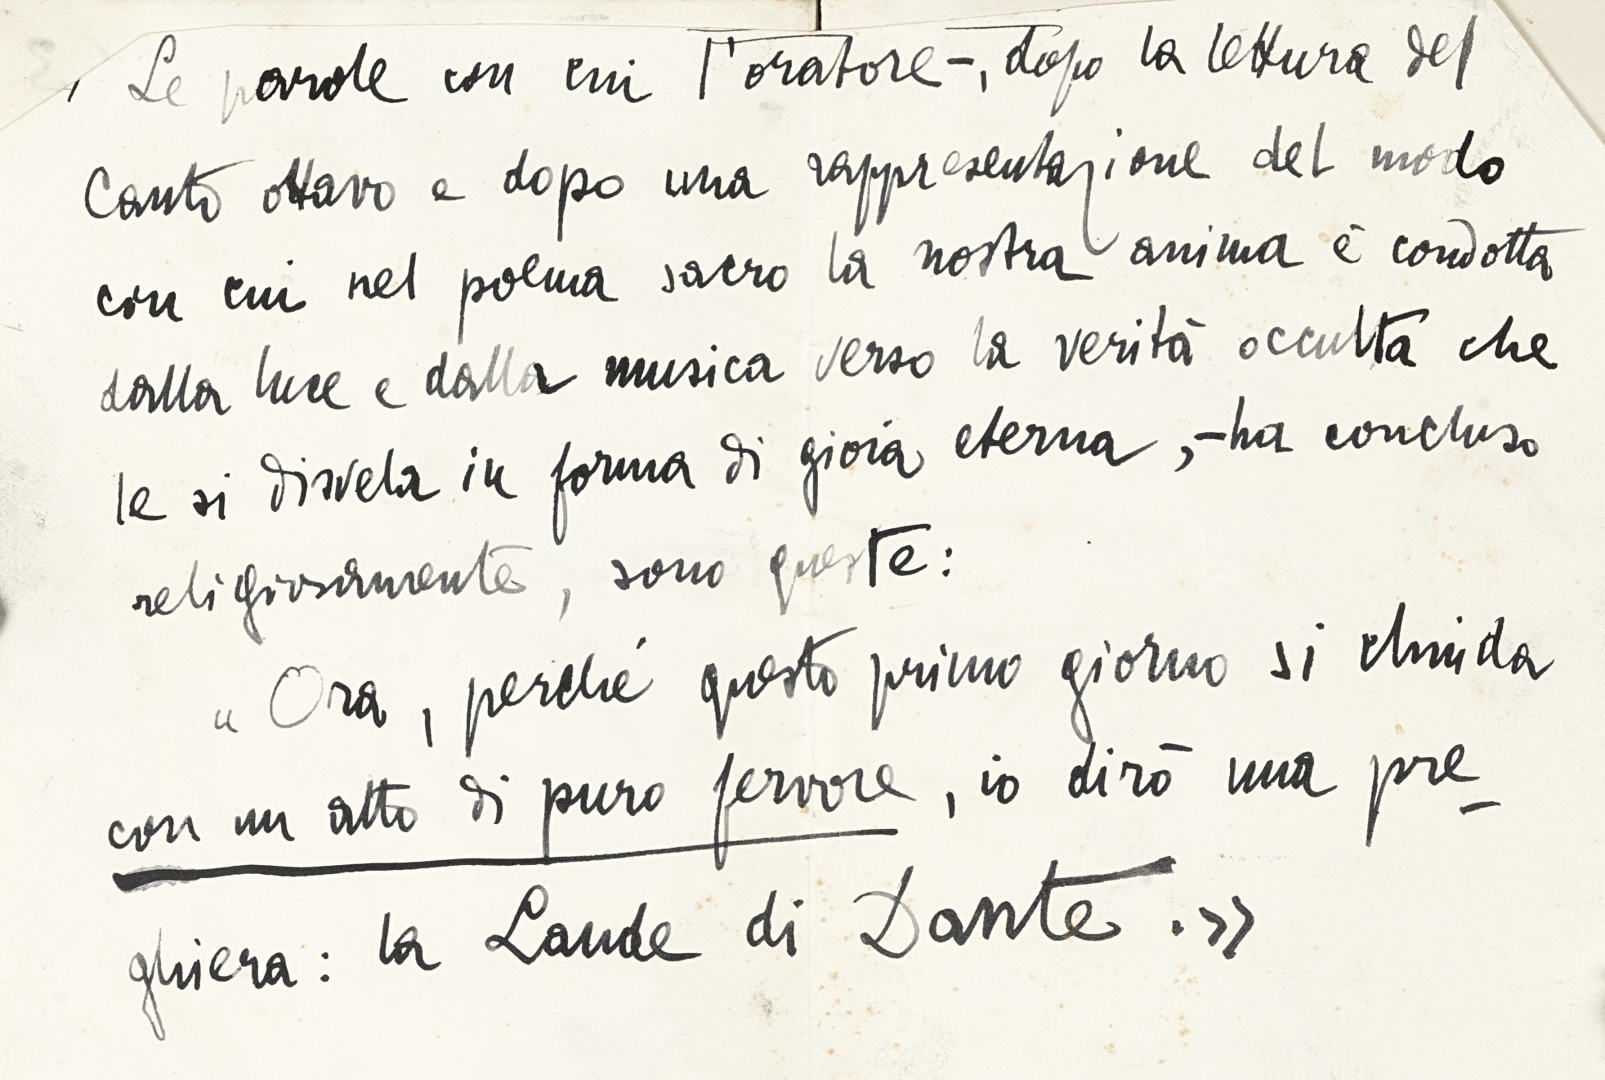 Le parole con cui l'oratore –, dopo la lettura del
Canto ottavo e dopo una rappresentazione del modo
con cui nel poema sacro la nostra anima è condotta
dalla luce e dalla musica verso la verità occulta che
le si disvela in forma di gioia eterna, – ha concluso
religiosamente, sono queste:
"Ora, perché questo primo giorno si chiuda
con un atto di puro fervore, io dirò una pre-
ghiera: la Laude di Dante.»